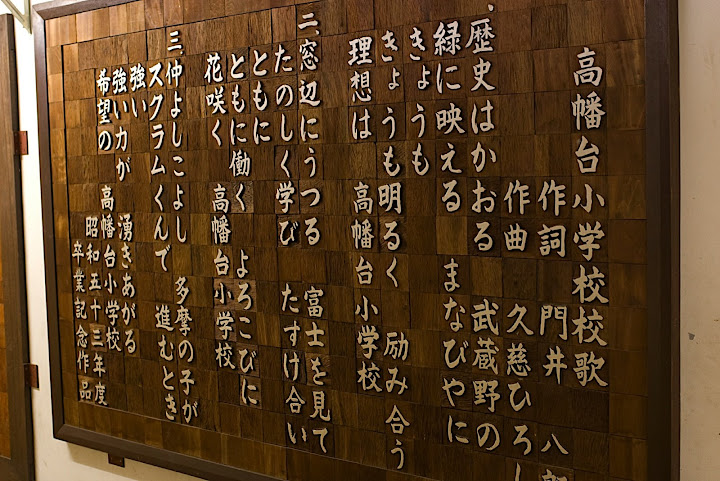 高幡台小学校校歌
作詞 門井 八郎
作曲 久慈ひろし
、歴史はかおる 武蔵野の
緑に映える まなびやに
きょうも
きょうも明るく 励み合う
理想は 高幡台小学校
二、窓辺にうつる 富士を見て
たのしく学び たすけ合い
ともに
ともに働く よろこびに
花咲く 高幡台小学校
三、仲よしこよし 多摩の子が
スクラムくんで 進むとき
強い
強い力が 湧きあがる
希望の 高幡台小学校
昭和五十三年度
卒業記念作品